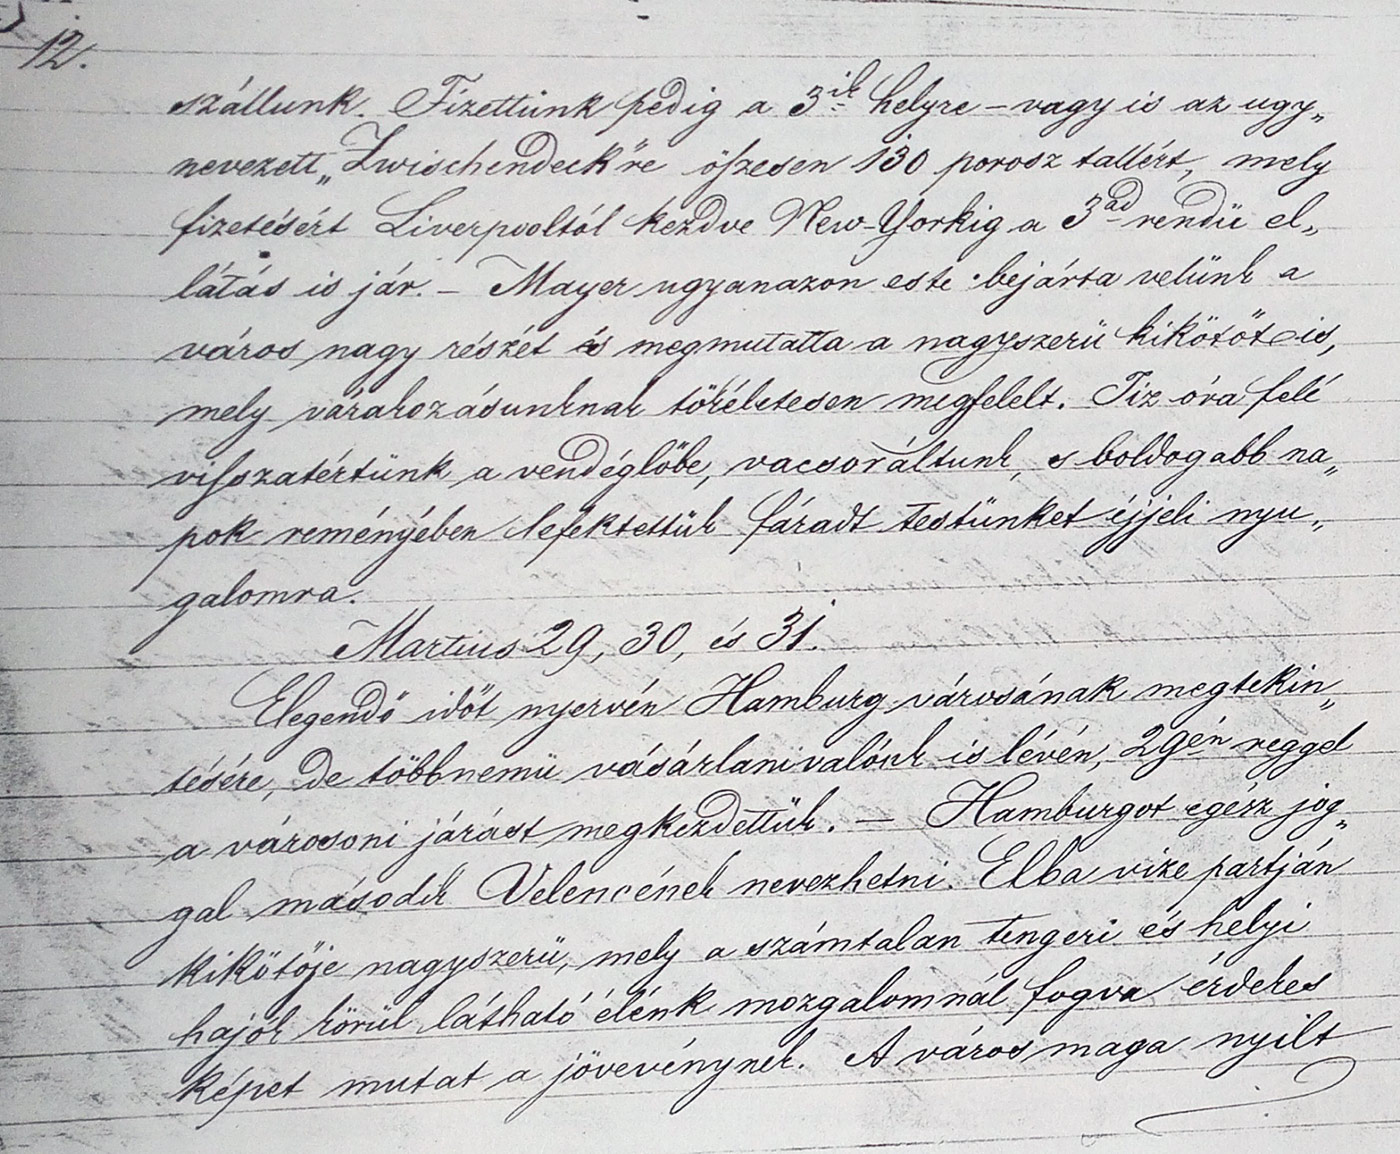 12.
szállunk. Fizettünk pedig a 3ik helyre – vagy is az ugy„
nevezett „Zwischendeck"re öſzesen 130 porosz tallért, mely
fizetésért Liverpooltól kezdve New-Yorkig a 3ad rendü el„
látás is jár. – Mayer ugyanazon este bejárta velünk a
város nagy részét és megmutatta a nagyszerü kikötőt is,
mely várakozásunknak tökéletesen megfelelt. Tiz óra felé
viſszatértünk a vendéglőbe, vacsoráltunk, s boldogabb na„
pok reményében lefektettük fáradt testünket éjjeli nyu„
galomra.
Martius 29, 30, és 31.
Elegendő időt nyervén Hamburg városának megtekin„
tésére, de többnemü vásárlanivalónk is lévén, 29én reggel
a városoni járást megkezdettük. – Hamburgot egész jog„
gal második Velencének nevezhetni. Elba vize partján
kikötője nagyszerü, mely a számtalan tengeri és helyi
hajók körül látható élénk mozgalomnál fogva érdekes
képet mutat a jövevénynek. A város maga nyilt